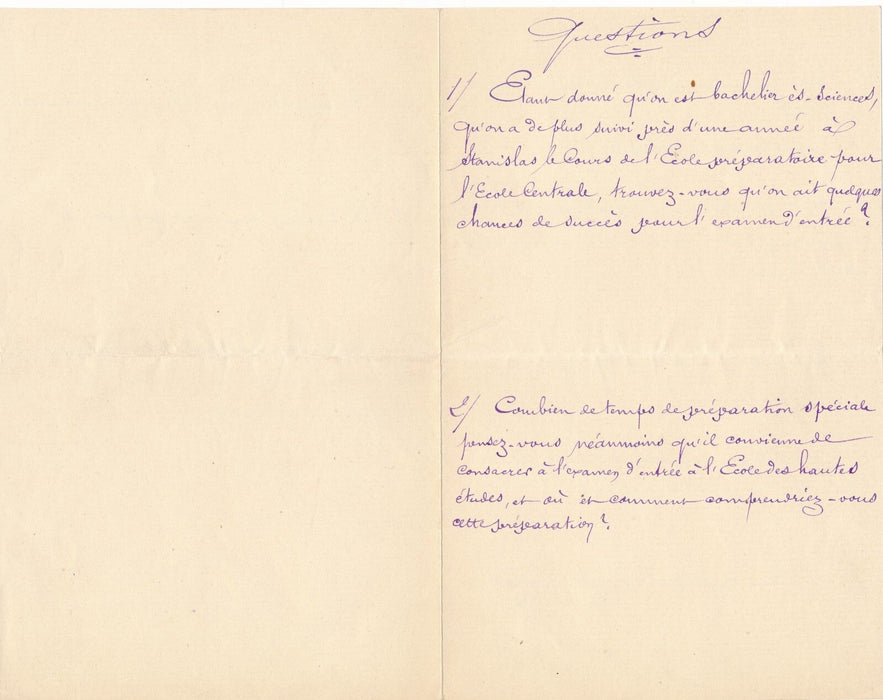 Questions
1/ Etant donné qu'on est bachelier ès-Sciences,
qu'on a de plus suivi près d'une année à
Stanislas le Cours de l'École préparatoire pour
l'École Centrale, trouvez-vous qu'on ait quelques
chances de succès pour l'examen d'entrée ?
2/ Combien de temps de préparation spéciale
pensez-vous néanmoins qu'il convienne de
consacrer à l'examen d'entrée à l'École des hautes
études, et où et comment comprendriez-vous
cette préparation ?